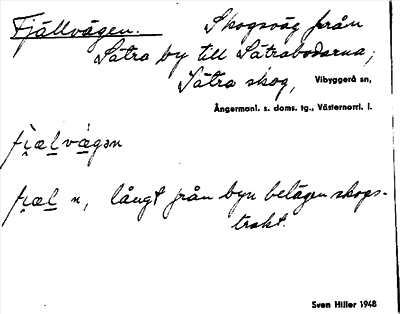 Fjällvägen. Skogsväg från
Sätra by till Sätrabodarna;
Sätra skog, Vibyggerå sn,
Ångermanl. s. doms. tg., Västernorrl. l.
fi̯ælvägən
fi̯æl n, långt från byn belägen skogs-
trakt.
Sven Hiller 1948